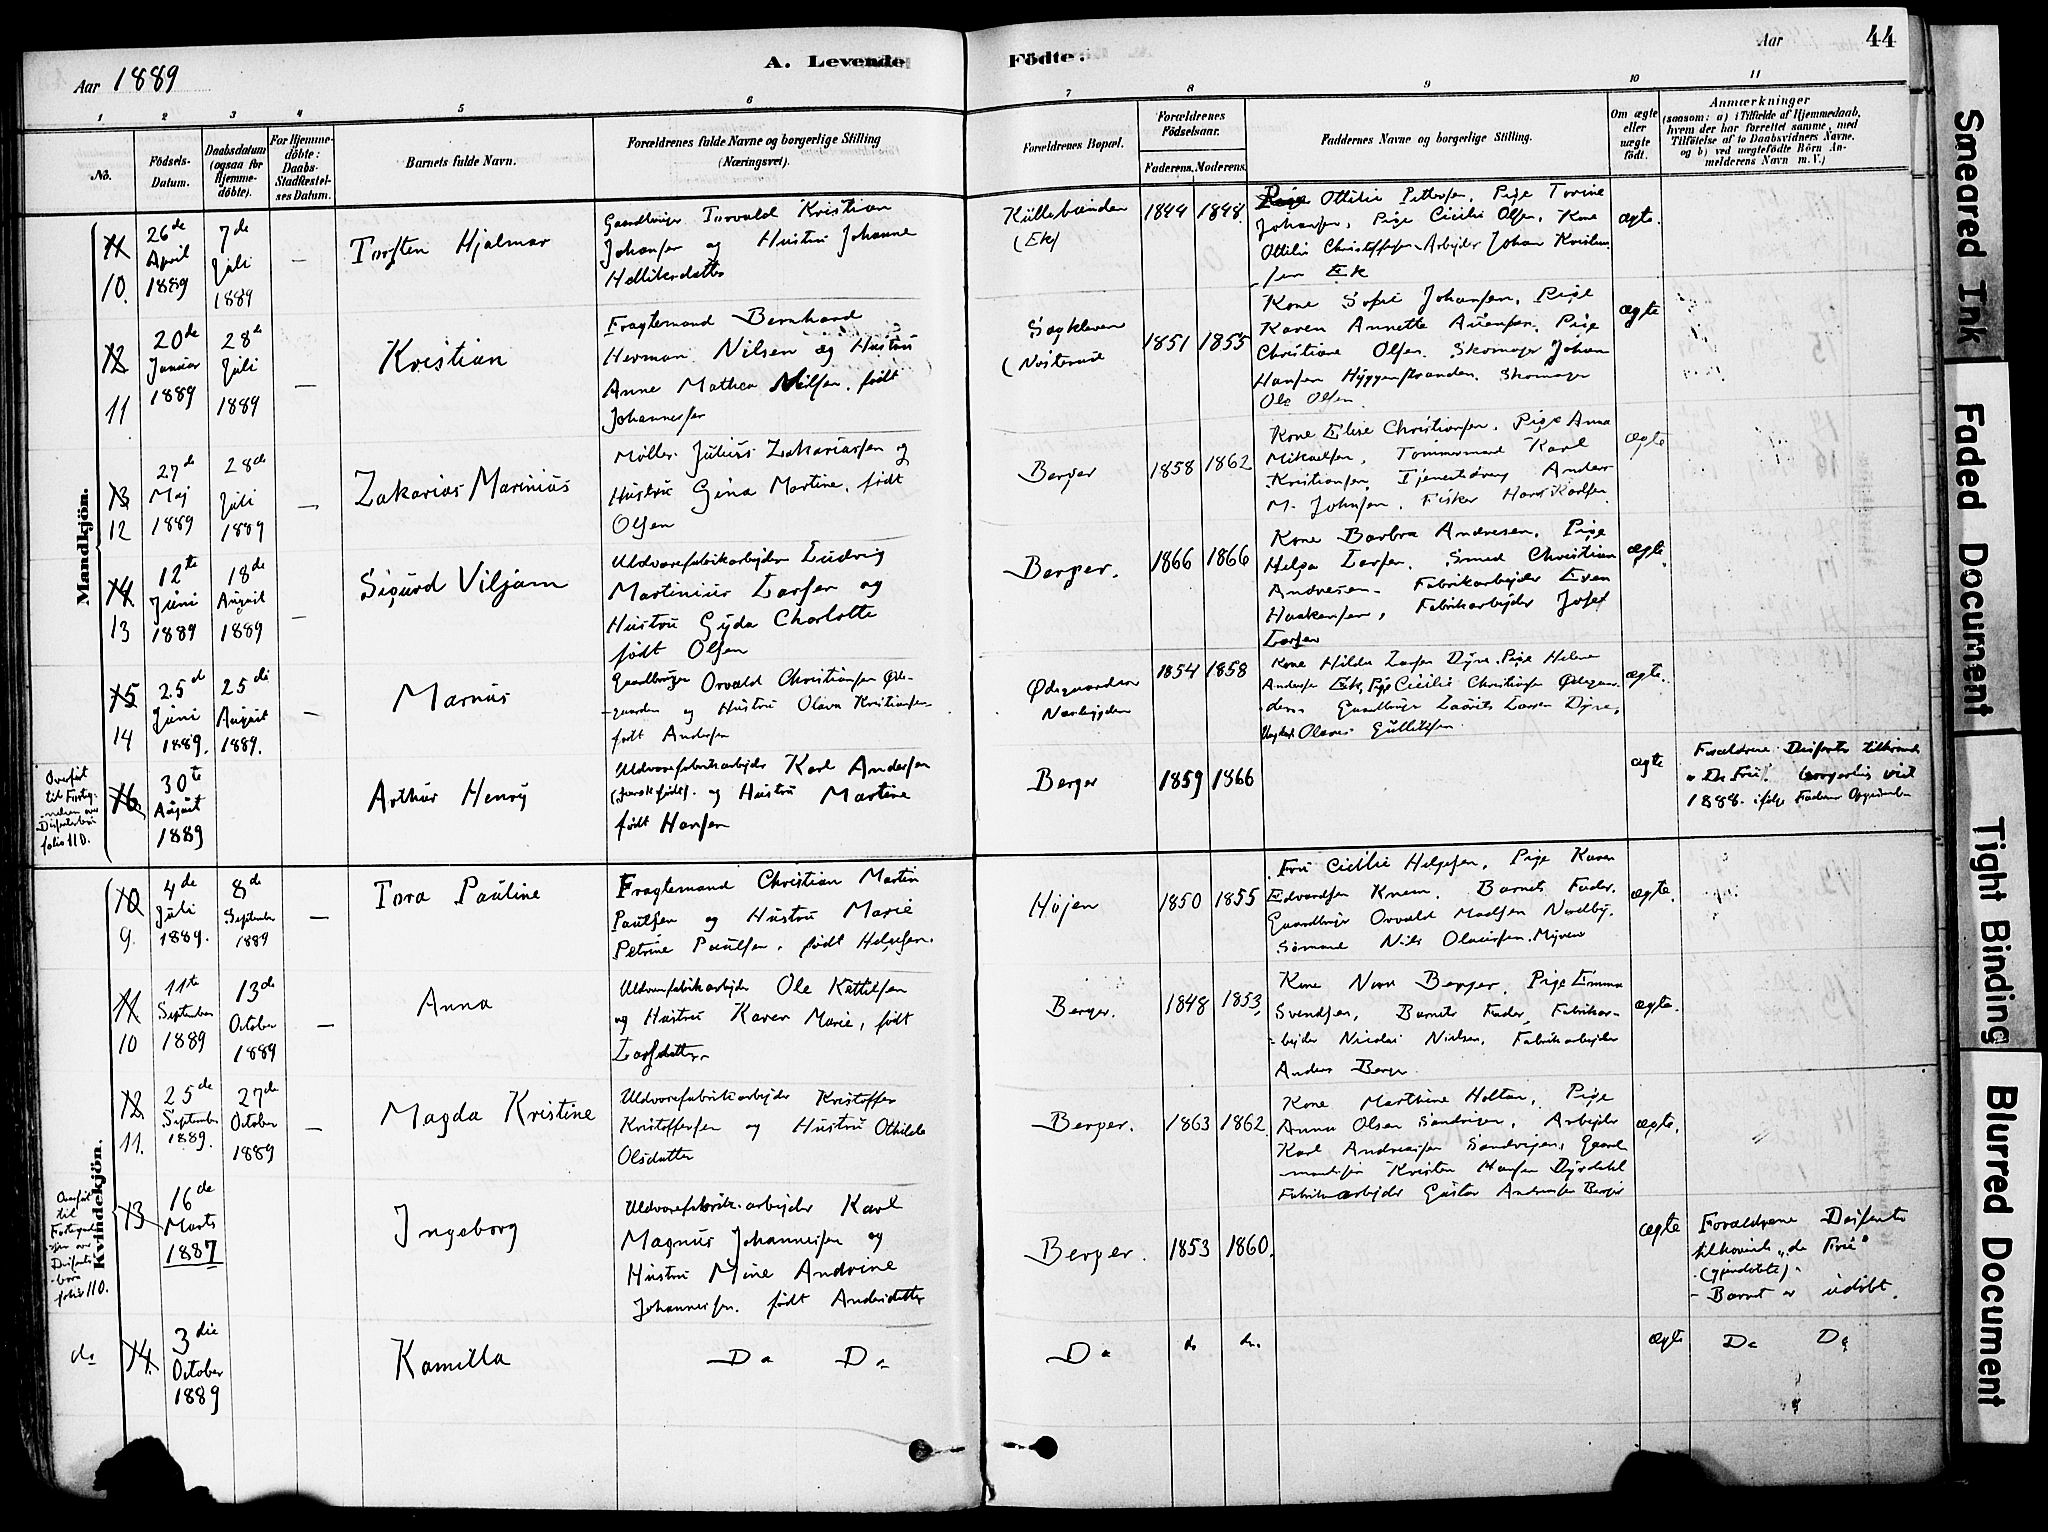 Aar 1889
A. Levende
Födte.
Aar
44
1
2
3
4
5
6
7
8
9
10
11
No.
Födsels-
Datum.
Daabsdatum
(ogsaa for
Hjemme-
döbte).
For Hjemme-
döbte:
Daabs-
Stadfæstel-
ses Datum.
Barnets fulde Navn.
Forældrenes fulde Navne og borgerlige Stilling
(Næringsvei).
Forældrenes Bopæl.
Forældrenes
Födselsaar.
Faderens.
Moderens.
Faddernes Navne og borgerlige Stilling.
Om ægte
eller
uægte
födt.
Anmærkninger
(saasom: a) i Tilfælde af Hjemmedaab,
hvem der har forrettet samme, med
Tilföielse af to Daabsvidners Navne,
og b) ved uægtefödte Börn An-
melderens Navn m. V.)
Mandkjön.
11
10.
26de
April
1889
7de
Juli
1889
—
Torsten Hjalmar
Gaardbruger Torvald Kristian
Johansen og Hustru Johanne
Helliksdatter
Küllebunden
(Ek)
1844
1848.
Pige Ottilie Pettersen, Pige Torine
Johansen, Pige Cicilie Olsen, Kone
Ottilie Christoffersen Arbejder Johan Kristian-
sen Ek
ægte.
12
11
20de
Januar
1889
28de
Juli
1889
—
Kristian
Fragtemand Bernhard
Herman Nilsen og Hustru
Anne Mathea Nilsen, født
Johannesen
Sagkleven
1851
1855
Kone Sofie Johansen, Pige
Karen Annette
Pige
Christiane Olsen. Skomager Johan
Hansen Hyggenstranden. Skomager
Ole Olsen.
ægte
13
12
27de
Maj
1889
28de
Juli
1889
—
Zakarias Marinius
Møller Julius Zakariassen og
Hustru Gina Martine, født
Olsen
Berger
1858
1862
Kone Elise Christiansen, Pige Anna
Mikaelsen, Tømmermand Karl
Kristiansen, Tjenestedreng Anders
M. Johnsen. Fisker Hans Karlsen.
ægte
14
13
12te
Juni
1889
18de
August
1889
—
Sigurd Viljam
Uldvarefabrikarbejder Ludvig
Martinius Larsen og
Hustru Gyda Charlotte
født Olsen
Berger.
1866
1866
Kone Barbra Andresen, Pige
Helga Larsen. Smed Christian
Andresen. Fabrikarbejder Even
Haakensen, Fabrikarbejder Josef
Larsen
ægte.
15
14
25de
Juni
1889.
25de
August
1889.
—
Marius
Gaardbruger Orvald Christiansen Øde-
-gaarden og Hustru Olava Kristiansen
født Andersen
Ødegaarden
Nærbygden
1854
1858
Kone Hilda Larsen Dyrø, Pige Helene
Andersen Ek, Pige Cicilie Christiansen Ødegaar-
den. Gaardbruger Laurits Larsen Dyrø,
Ungkarl Olaves Gulliksen.
ægte.
Overført
til Forteg-
nelsen over
Disenterbørn
folio 110.
16
30te
August
1889
Arthur Henry
Uldvarefabrikarbejder Karl Andersen
og Hustru Martine
født Hansen
Berger
1859
1866
ægte
Forældrene Disenter tilhørende
„De Frie“. borgerlig viet
1888. ifølge Faderens Opgivende.
Kvindekjön.
10
9.
4de
Juli
1889.
8de
September
1889
—
Tora Pauline
Fragtemand Christian Martin
Paulsen og Hustru Marie
Petrine Paulsen, født Helgesen.
Højen
1850
1855
Fru Cicilie Helgesen, Pige Karen
Edvardsen Knem. Barnets Fader.
Gaardbruger Orvald Madsen Nordby.
Sømand Nils Olausen. Myren
ægte.
11
10
11te
September
1889
13de
October
1889
—
Anna
Uldvarefabrikarbejder Ole Kettilsen
og Hustru Karen Marie, født
Larsdatter.
Berger.
1848
1853,
Kone Nora Berger, Pige Emma
Svendsen, Barnets Fader, Fabrikar-
-bejder Nicolai Nielsen. Fabrikarbejder
Anders Berger
ægte.
12
11.
25de
September
1889.
27de
October
1889
—
Magda Kristine
Uldvarefabrikarbejder Kristoffer
Kristoffersen og Hustru Othilde
Olsdatter
Berger.
1863
1862.
Kone Marthine Holtar, Pige
Anna Olsen Sandvigen, Arbejder
Karl Andreasen Sandvigen, Gaard-
mandssøn Kristen Hansen Dyrdahl
Fabrikarbejder Gustav Andersen Berger
ægte.
Overført
til
Fortegnel-
sen over
Disenter-
børn
folio 110.
13
16de
Marts
1887
Ingeborg
Uldvarefabrik-arbejder Karl
Magnus Johannessen og
Hustru Mine Andrine
Johannessen. født Andersdatter
Berger.
1853
1860.
ægte
Forældrene Disenter
tilhørende „de Frie“
(gjendøbte).
- Barnet er udøbt.
do
14.
3die
October
1889
Kamilla
Do Do
Do
do
do.
ægte
Do Do
Smeared Ink
Faded Document
Tight Binding
Blurred Document